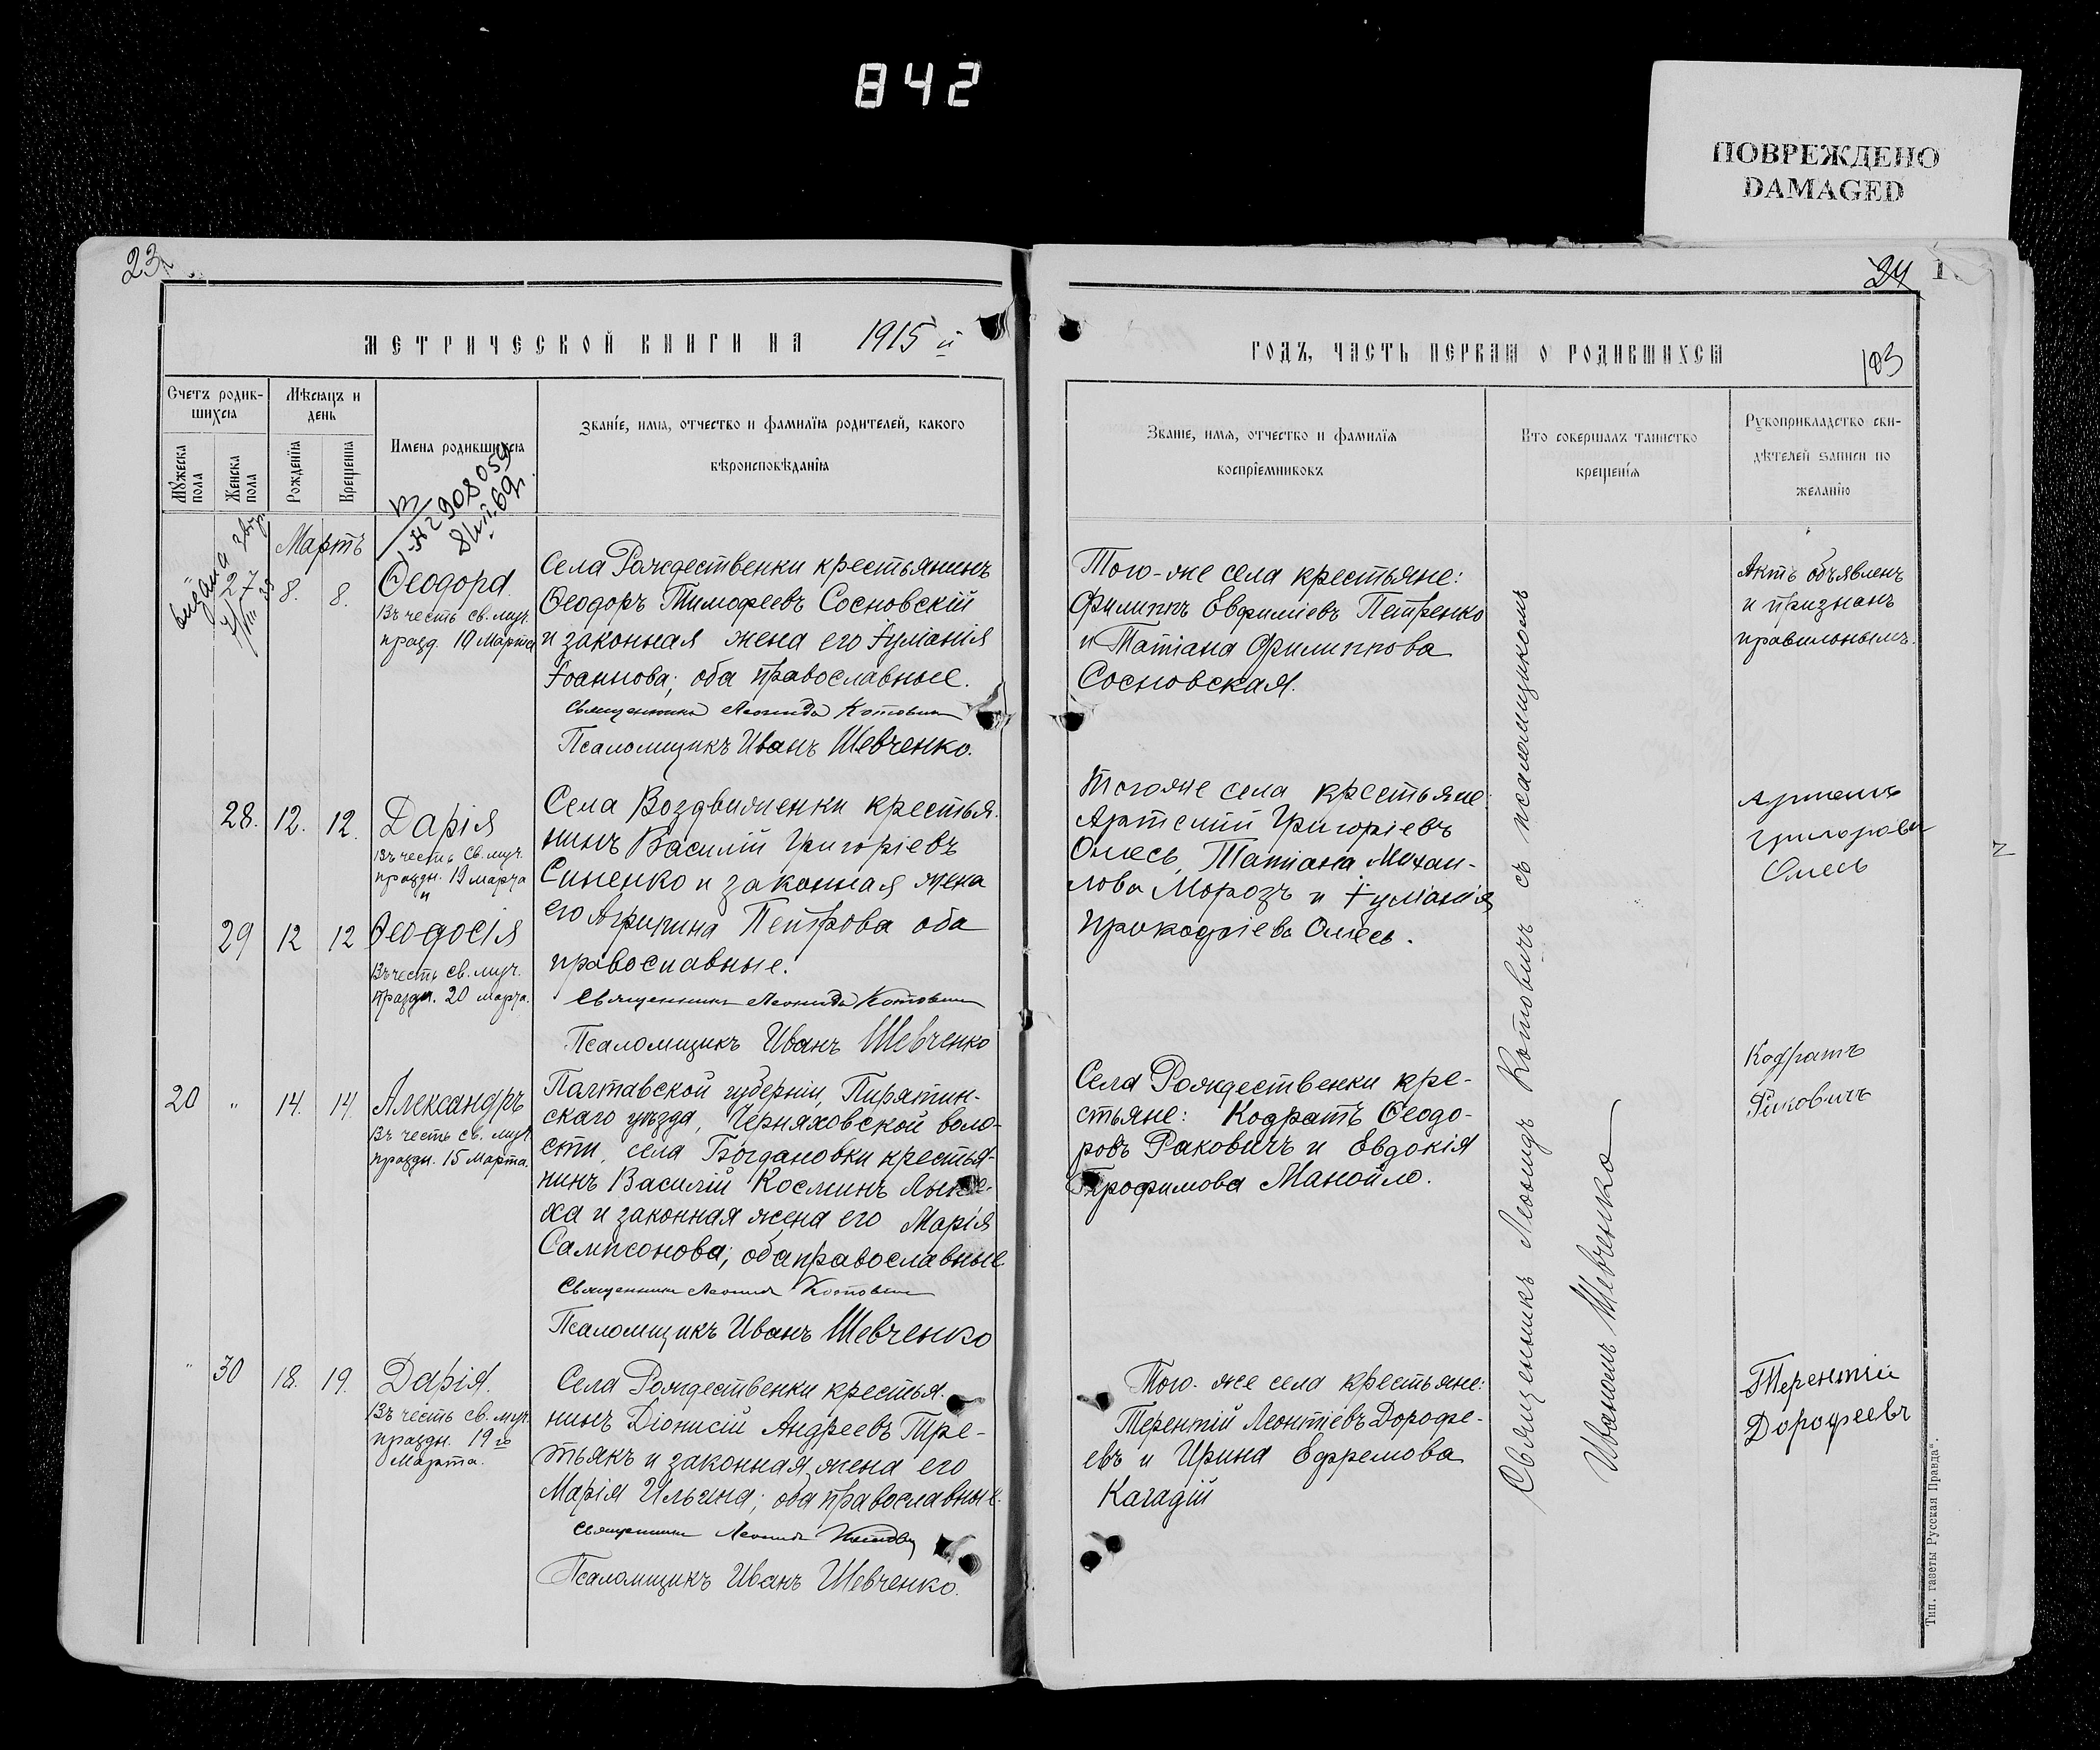 842
ПОВРЕЖДЕНО
DAMAGED
23
24
МЕТРИЧЕСКОЙ КНИГИ НА 1915 й
ГОДЪ, ЧАСТЬ ПЕРВАЯ О РОДИВШИХСЯ
103
Счетъ родив-
шихся
Мужеска пола
Женска пола
Мѣсяцъ и
день
Рожденія
Крещенія
Имена родившихся
Званіе, имя, отчество и фамилія родителей, какого
вѣроисповѣданія
Званіе, имя, отчество и фамилія
воспріемниковъ
Кто совершалъ таинство
крещенія
Рукоприкладство сви-
дѣтелей записи по
желанію
Мартъ
27
8.
8.
Ѳеодора
Въ честь св. муч.
празд. 19 Марта
Села Рождественки крестьянинъ
Ѳеодоръ Тимофеевъ Сосновскій
и законная жена его Іуліанія
Іоаннова; оба православные.
Священникъ Леонидъ Котовичъ
Псаломщикъ Иванъ Шевченко.
Того-же села крестьяне:
Филиппъ Евфиміевъ Петренко
и Татіана Филиппова
Сосновская.
Актъ объявленъ
и признанъ
правильнымъ.
28.
12.
12.
Дарія
Въ честь св. муч.
праздн. 19 марта
и
29
12
12
Ѳеодосія
Въ честь св. муч.
праздн. 20 марта.
Села Воздвиженки крестья-
нинъ Василій Григоріевъ
Синенко и законная жена
его Агрипина Петрова оба
православные.
Священникъ Леонидъ Котовичъ
Псаломщикъ Иванъ Шевченко
Тогоже села крестьяне:
Артемій Григоріевъ
Олесь, Татіана Михаи-
лова Морозъ и Іуліанія
Олесь.
Григоровъ
Олесь
20
"
14.
14.
Александръ
Въ честь св. муч.
праздн. 15 Марта.
Полтавской губерніи, Пирятин-
скаго уѣзда, Черняховской воло-
сти, села Богдановки крестья-
нинъ Василій Косминъ
ха и законная жена его Марія
Сампсонова; оба православные
Священникъ Леонидъ Котовичъ
Псаломщикъ Иванъ Шевченко
Села Рождественки кре-
стьяне: Кодратъ Ѳеодо-
ровъ Раковичъ и Евдокія
Трофимова Манойло.
Кодратъ
Раковичъ
"
30
18.
19.
Дарія.
Въ честь св. муч.
праздн. 19го
Марта.
Села Рождественки крестья-
нинъ Діонисій Андреевъ Тре-
тьякъ и законная жена его
Марія Ильина; оба православные.
Священникъ Леонидъ Котовичъ
Псаломщикъ Иванъ Шевченко.
Того-же села крестьяне:
Терентій Леонтіевъ Дорофе-
евъ и Ирина Ефремова
Кагадій
Терентій
Дорофеевъ
Священникъ Леонидъ Котовичъ съ псаломщикомъ
Иваномъ Шевченко
Тип. газеты „Русская Правда“.